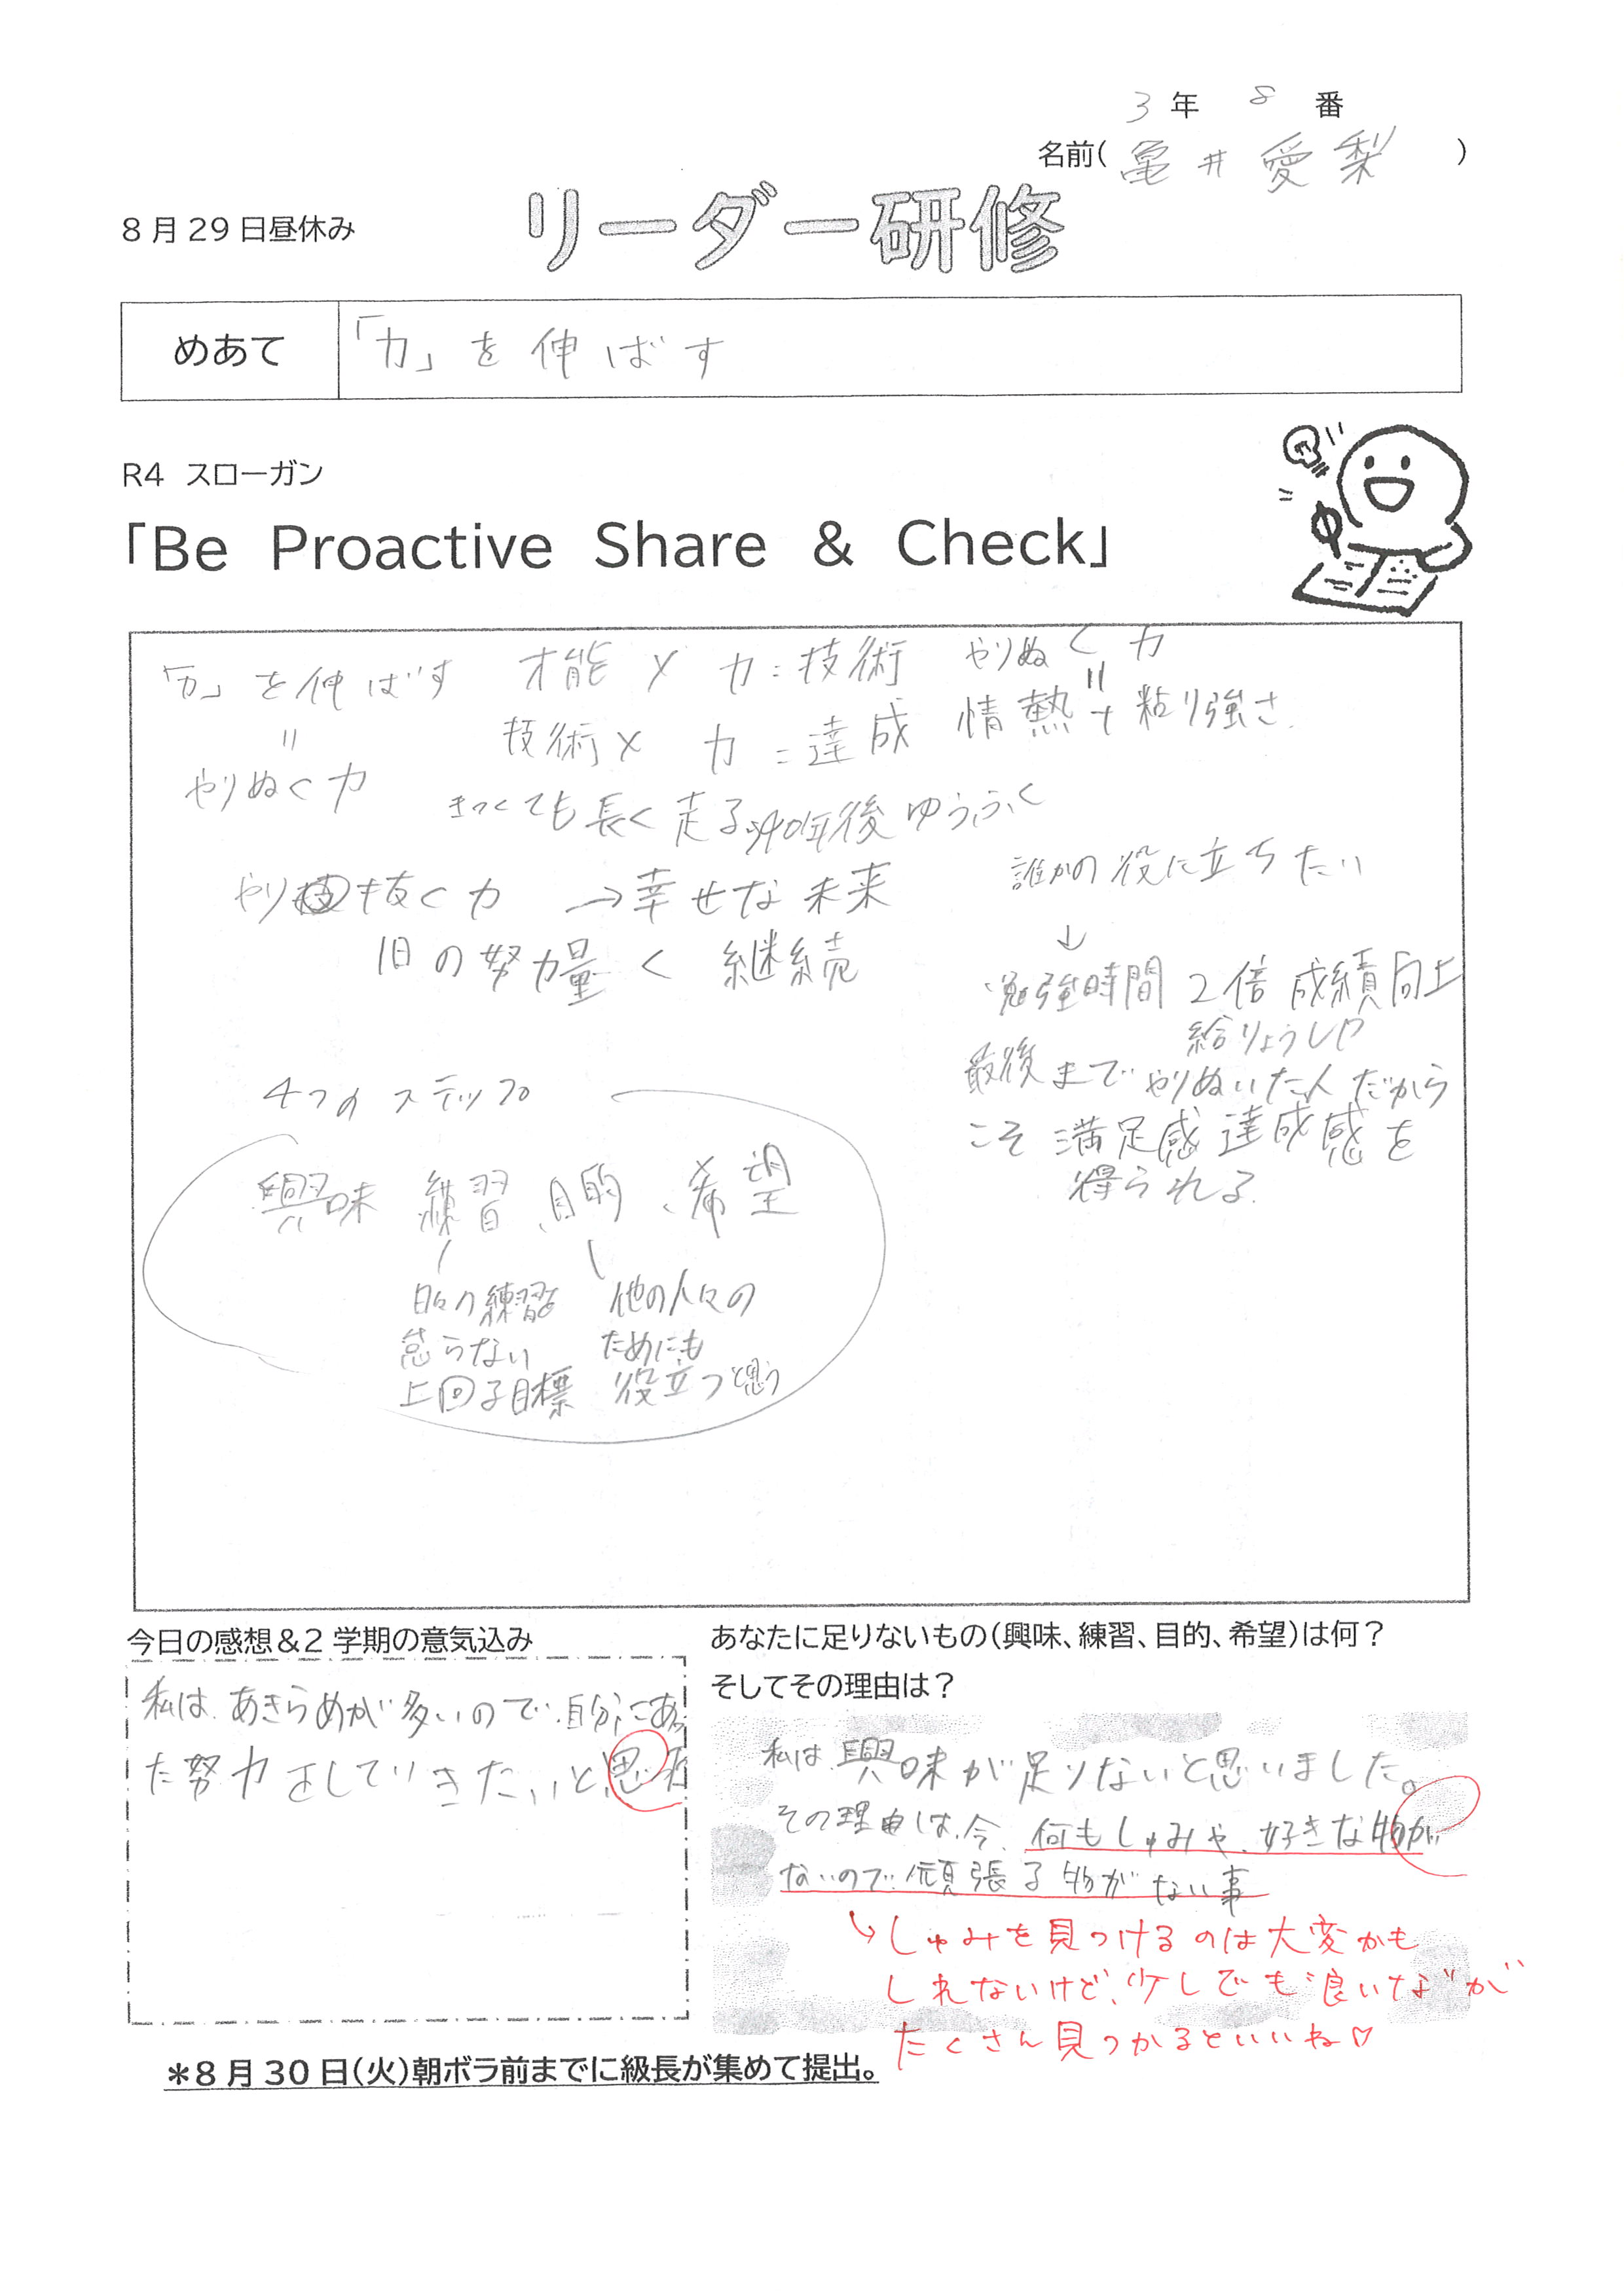 3年 8番
名前(亀井愛梨)
8月29日昼休み
リーダー研修
めあて
「力」を伸ばす
R4 スローガン
「Be Proactive Share & Check」
「力」を伸ばす
＝
やりぬく力
才能×力=技術
技術×力=達成
やりぬく力
＝
情熱+粘り強さ
きつくても長く走る 40年後ゆうふく
やり抜く力 →幸せな未来
1日の努力量 < 継続
誰かの役に立ちたい
↓
勉強時間 2倍 成績向上
給りょうしや
最後までやりぬいた人だから
こそ満足感達成感を
得られる
4つのステップ
興味 練習、目的、希望
日々の練習を
怠らない
上回る目標
他の人々の
ためにも
役立つと思う
今日の感想&2学期の意気込み
私は、あきらめが多いので、自分にあっ
た努力をしていきたいと思
あなたに足りないもの(興味、練習、目的、希望)は何?
そしてその理由は?
私は、興味が足りないと思いました。
その理由は、今、何もしゅみや、好きな物が
ないので、頑張る物がない事
↳しゅみを見つけるのは大変かも
しれないけど、少しでも"良いな"が
たくさん見つかるといいね♡
*8月30日(火)朝ボラ前までに級長が集めて提出。